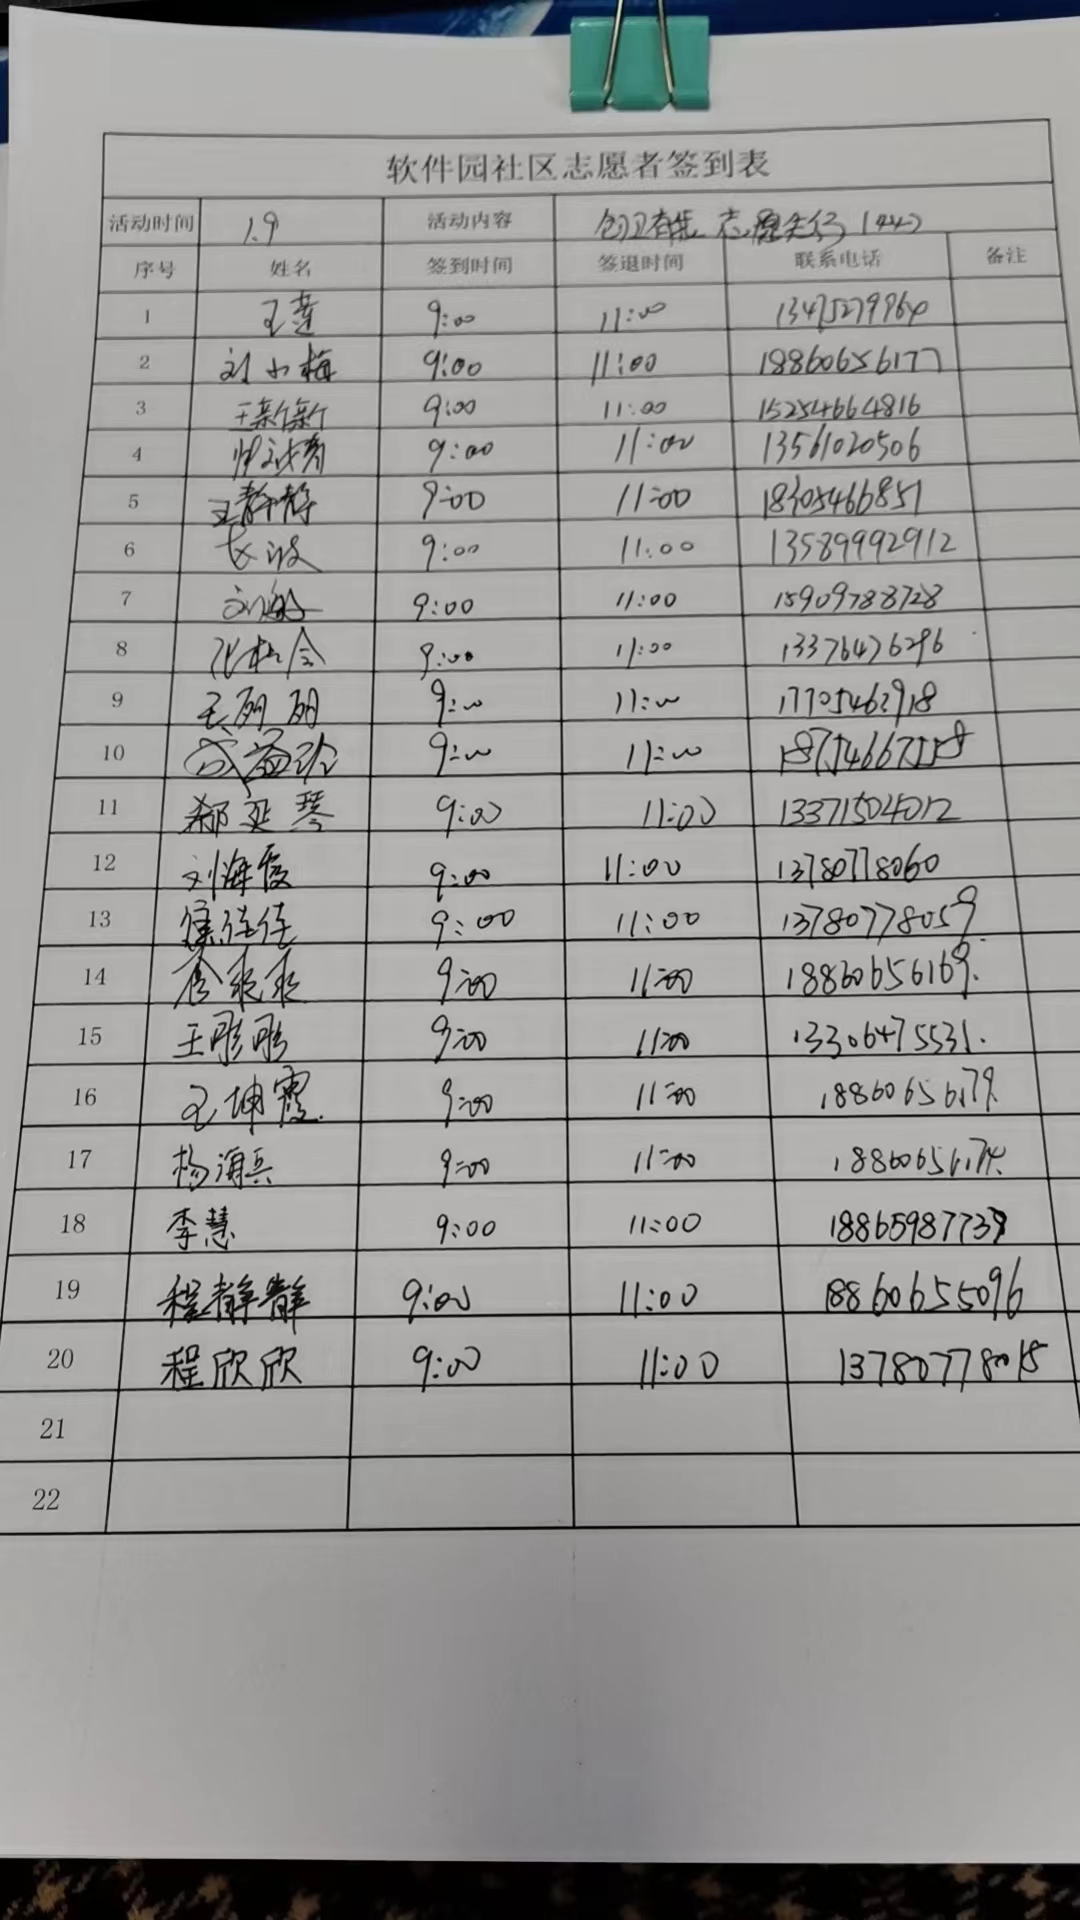 软件园社区志愿者签到表
活动时间 1.9 活动内容 创卫有我 志愿先行
序号 姓名 签到时间 签退时间 联系电话 备注
1 王莲 9:00 11:00
2 刘小梅 9:00 11:00 18860656177
3 王新新 9:00 11:00 15254664816
4 9:00 11:00 13561020506
5 王静静 9:00 11:00 18305466851
6 9:00 11:00 13589992912
7 9:00 11:00 15909788728
8 张桂会 9:00 11:00 13376476296
9 王丽丽 9:00 11:00 17705462918
10 9:00 11:00
11 郝延琴 9:00 11:00 13371504012
12 刘海霞 9:00 11:00 13780778060
13 徐佳佳 9:00 11:00 13780778059
14 9:00 11:00 18860656169
15 王彤彤 9:00 11:00 13306475531
16 王坤霞 9:00 11:00 18860656179
17 杨海兵 9:00 11:00 18860656174
18 李慧 9:00 11:00 18865987739
19 程静静 9:00 11:00 18860655096
20 程欣欣 9:00 11:00 13780778015
21
22